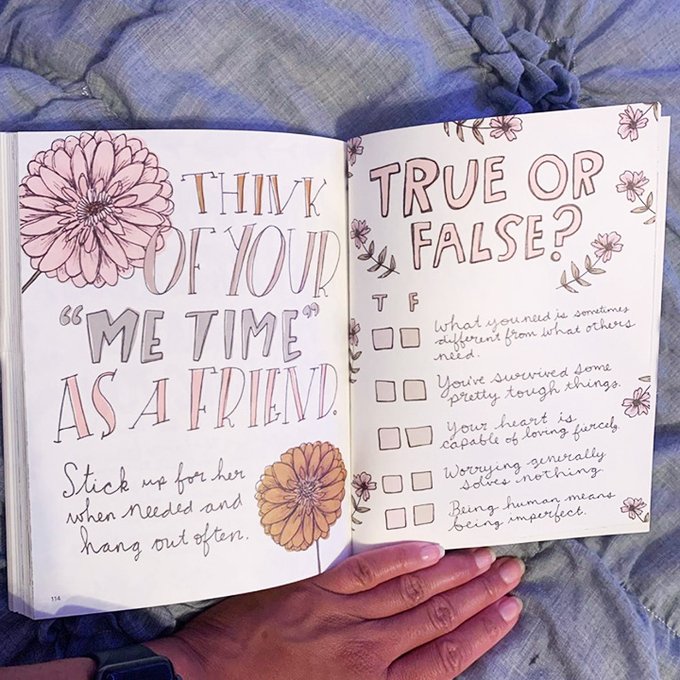 THINK
OF YOUR
"ME TIME"
AS A FRIEND.
Stick up for her
when needed and
hang out often.
114
TRUE OR
FALSE?
T F
What you need is sometimes
different from what others
need.
You've survived some
pretty tough things.
Your heart is
capable of loving fiercely.
Worrying generally
solves nothing.
Being human means
being imperfect.